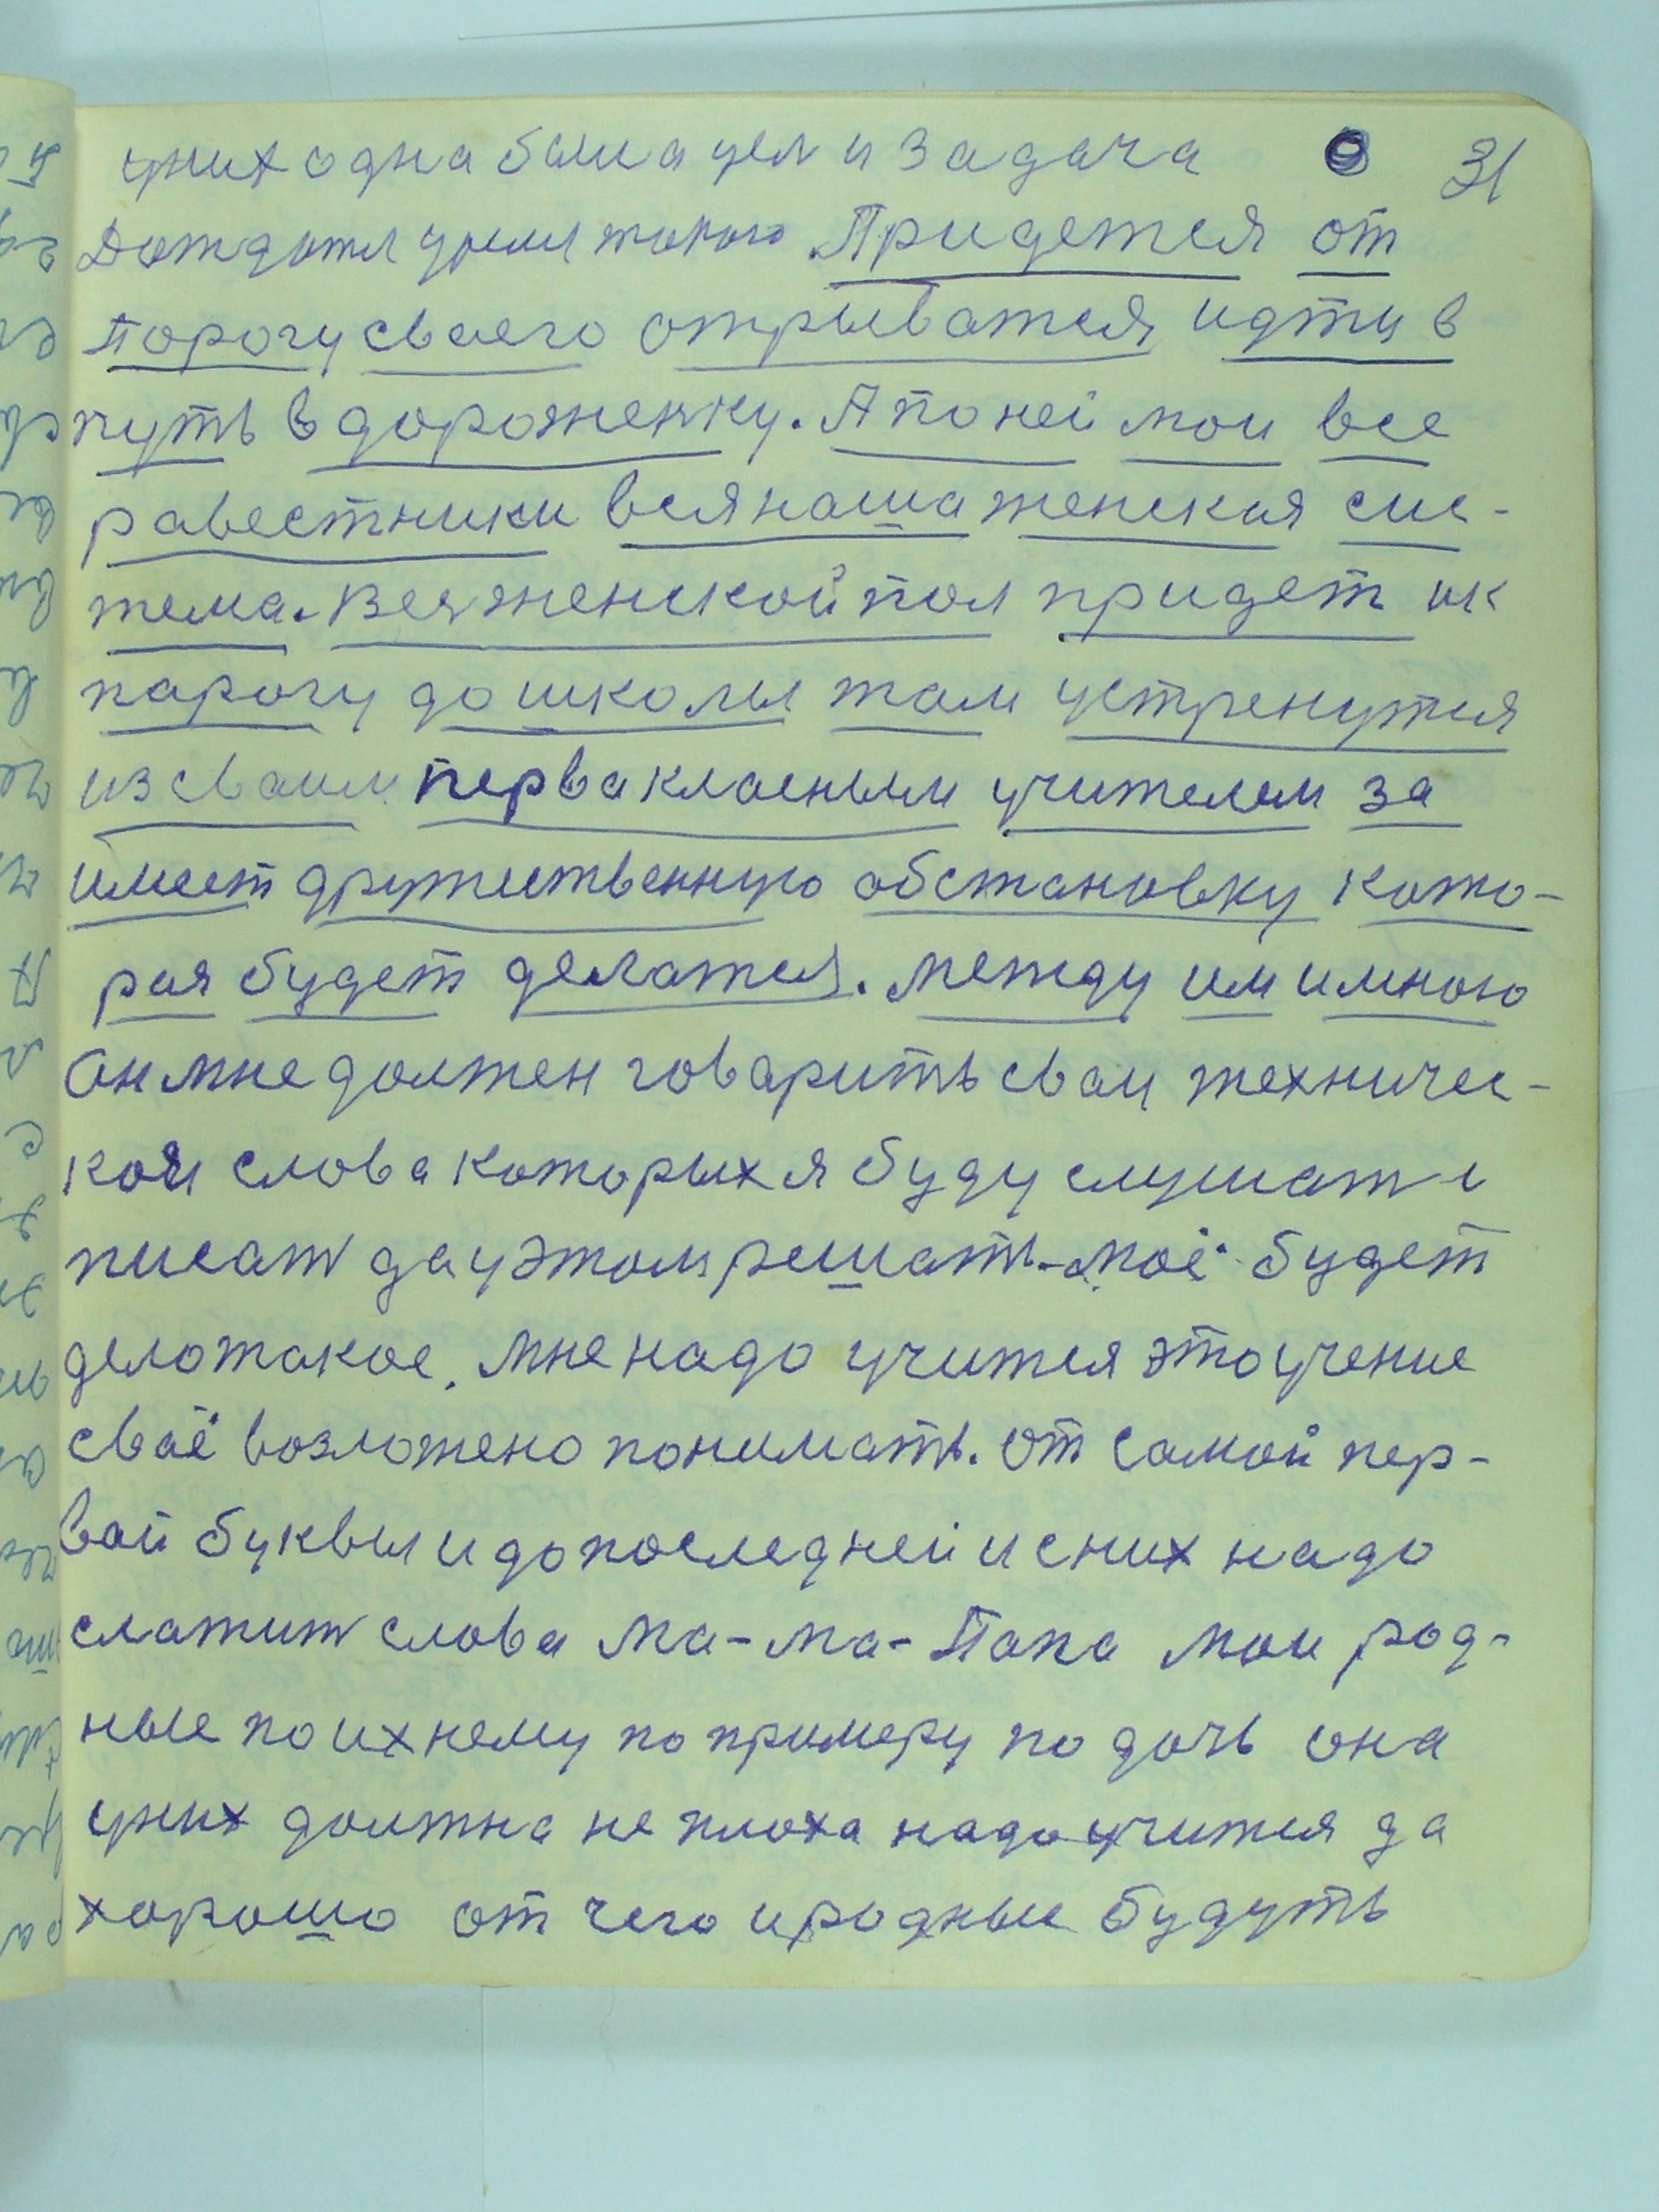 у них одна была цел и задача 31
Дождатся уроки такого. Придется от
порогу своего отрыватся, идти в
путь в дороженьку. А по ней мои все
равестники вся наша женская сис-
тема. Вся женской пол придет ик
парогу до школы там устренутся
из сваим первакласным учителем за
имеет дружественную обстановку кото-
рая будет делатся. между им и мною
Он мне должен говарить сваи техничес-
кои слова которых я буду слушат и
писат да у этом решать. моё будет
дело такое. мне надо учится это учение
сваё возложено понимать. от самой пер-
вай буквы и до последней и с них надо
слажит слова ма-ма-Папа мои род-
ные по ихнему по примеру по дочь она
у них должна не плоха надо учится да
хорошо от чего и родные будуть